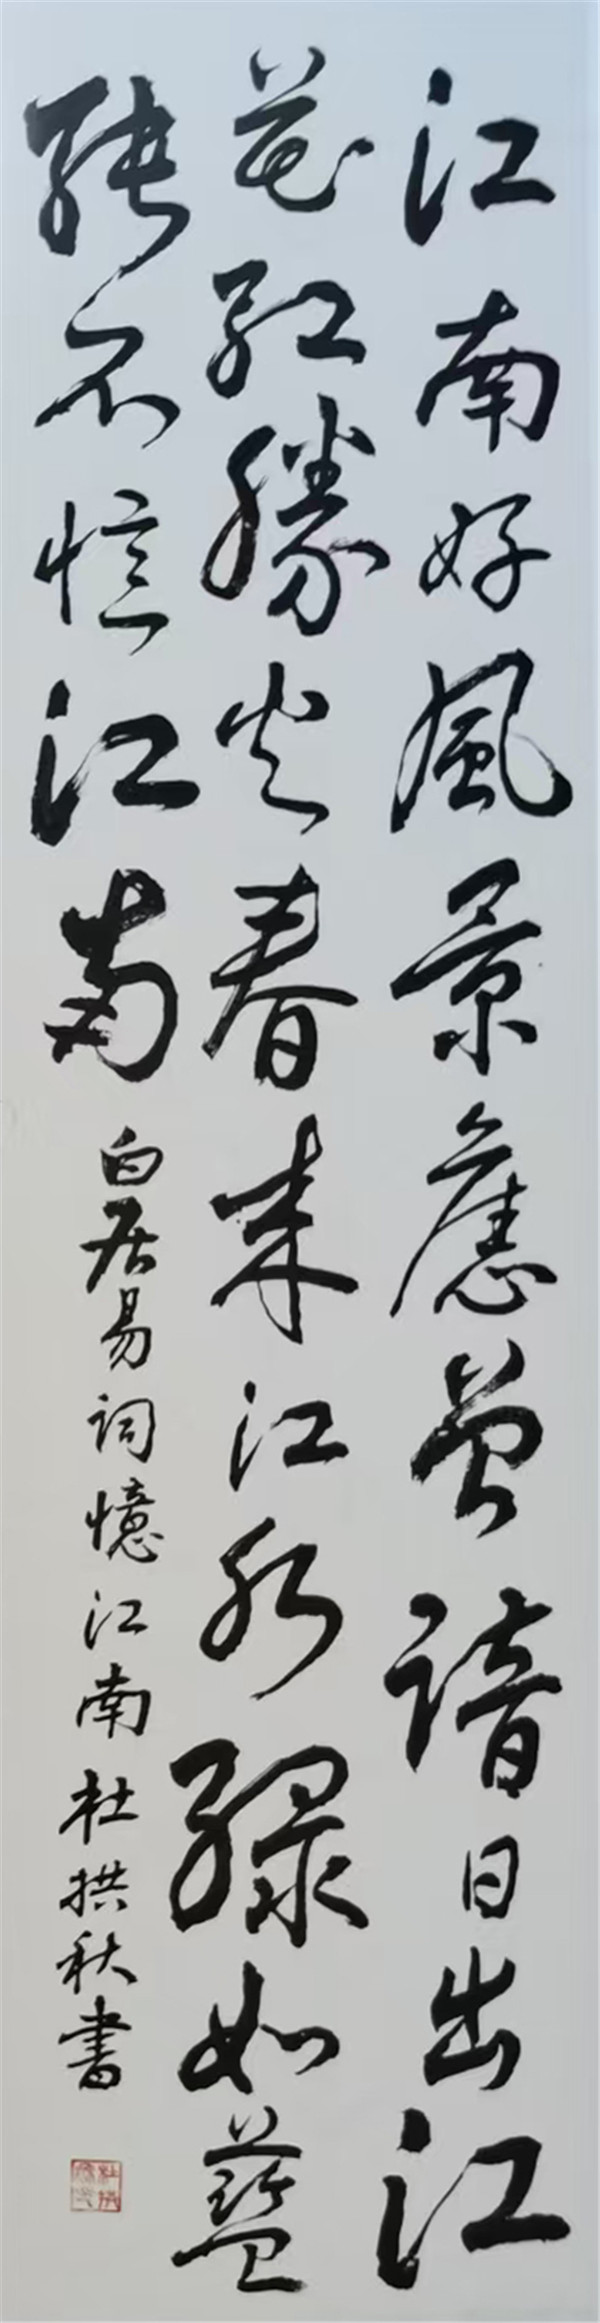 江南好風景舊曾諳日出江
花紅勝火春來江水綠如藍
能不憶江南
白居易詞憶江南杜拱秋書